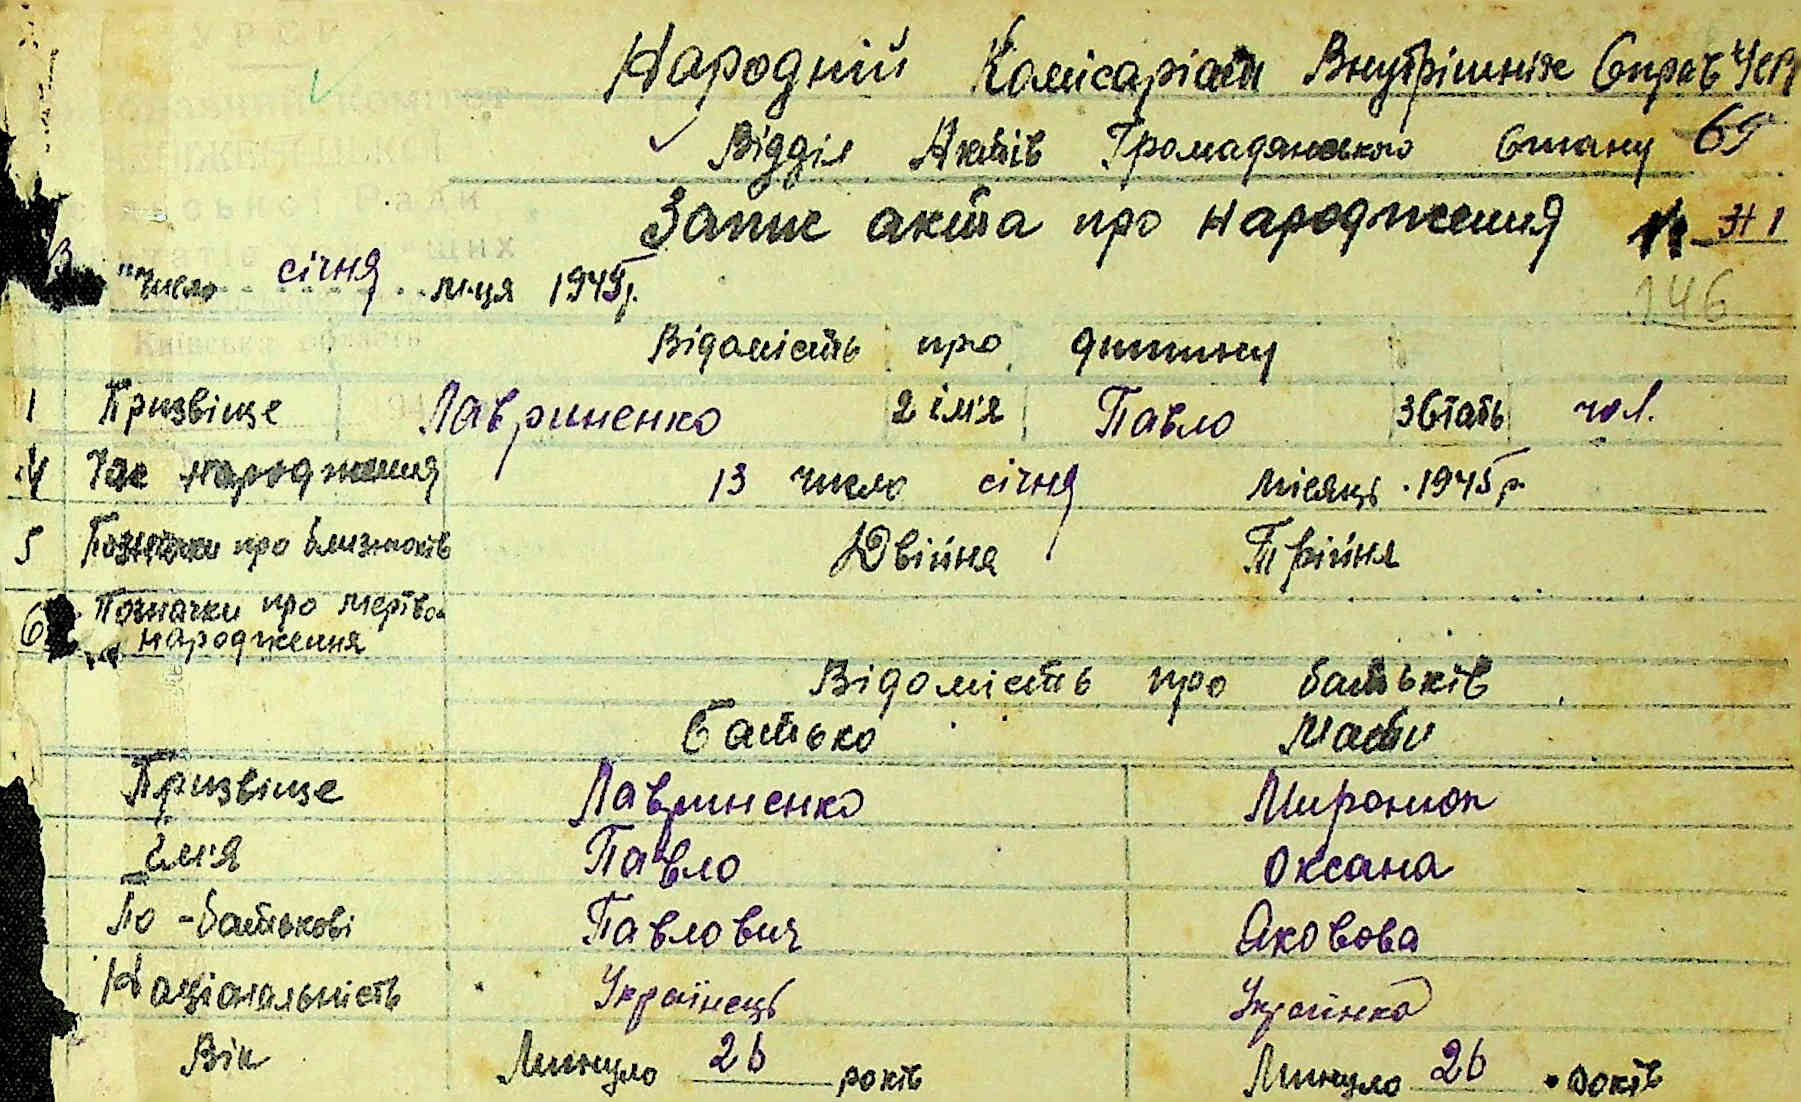 Народній Комісаріат Внутрішніх Справ УСР
Відділ Актів Громадянського Стану 69
Запис акта про народження № 1
146
число січня м-ця 1945р.
Відомість про дитину
1 Призвіще Лавриненко 2 ім'я Павло 3 Стать чол.
4 Час народження 13 число січня місяць 1945р.
5 Позначки про близнюків Двійня Трійня
6 Позначки про мертво-
народження
Відомість про батьків
Батько Мати
Призвіще Лавриненко Миронюк
Ім'я Павло Оксана
По-батькові Павлович Яковова
Національність Українець Українка
Вік Минуло 26 років Минуло 26 років